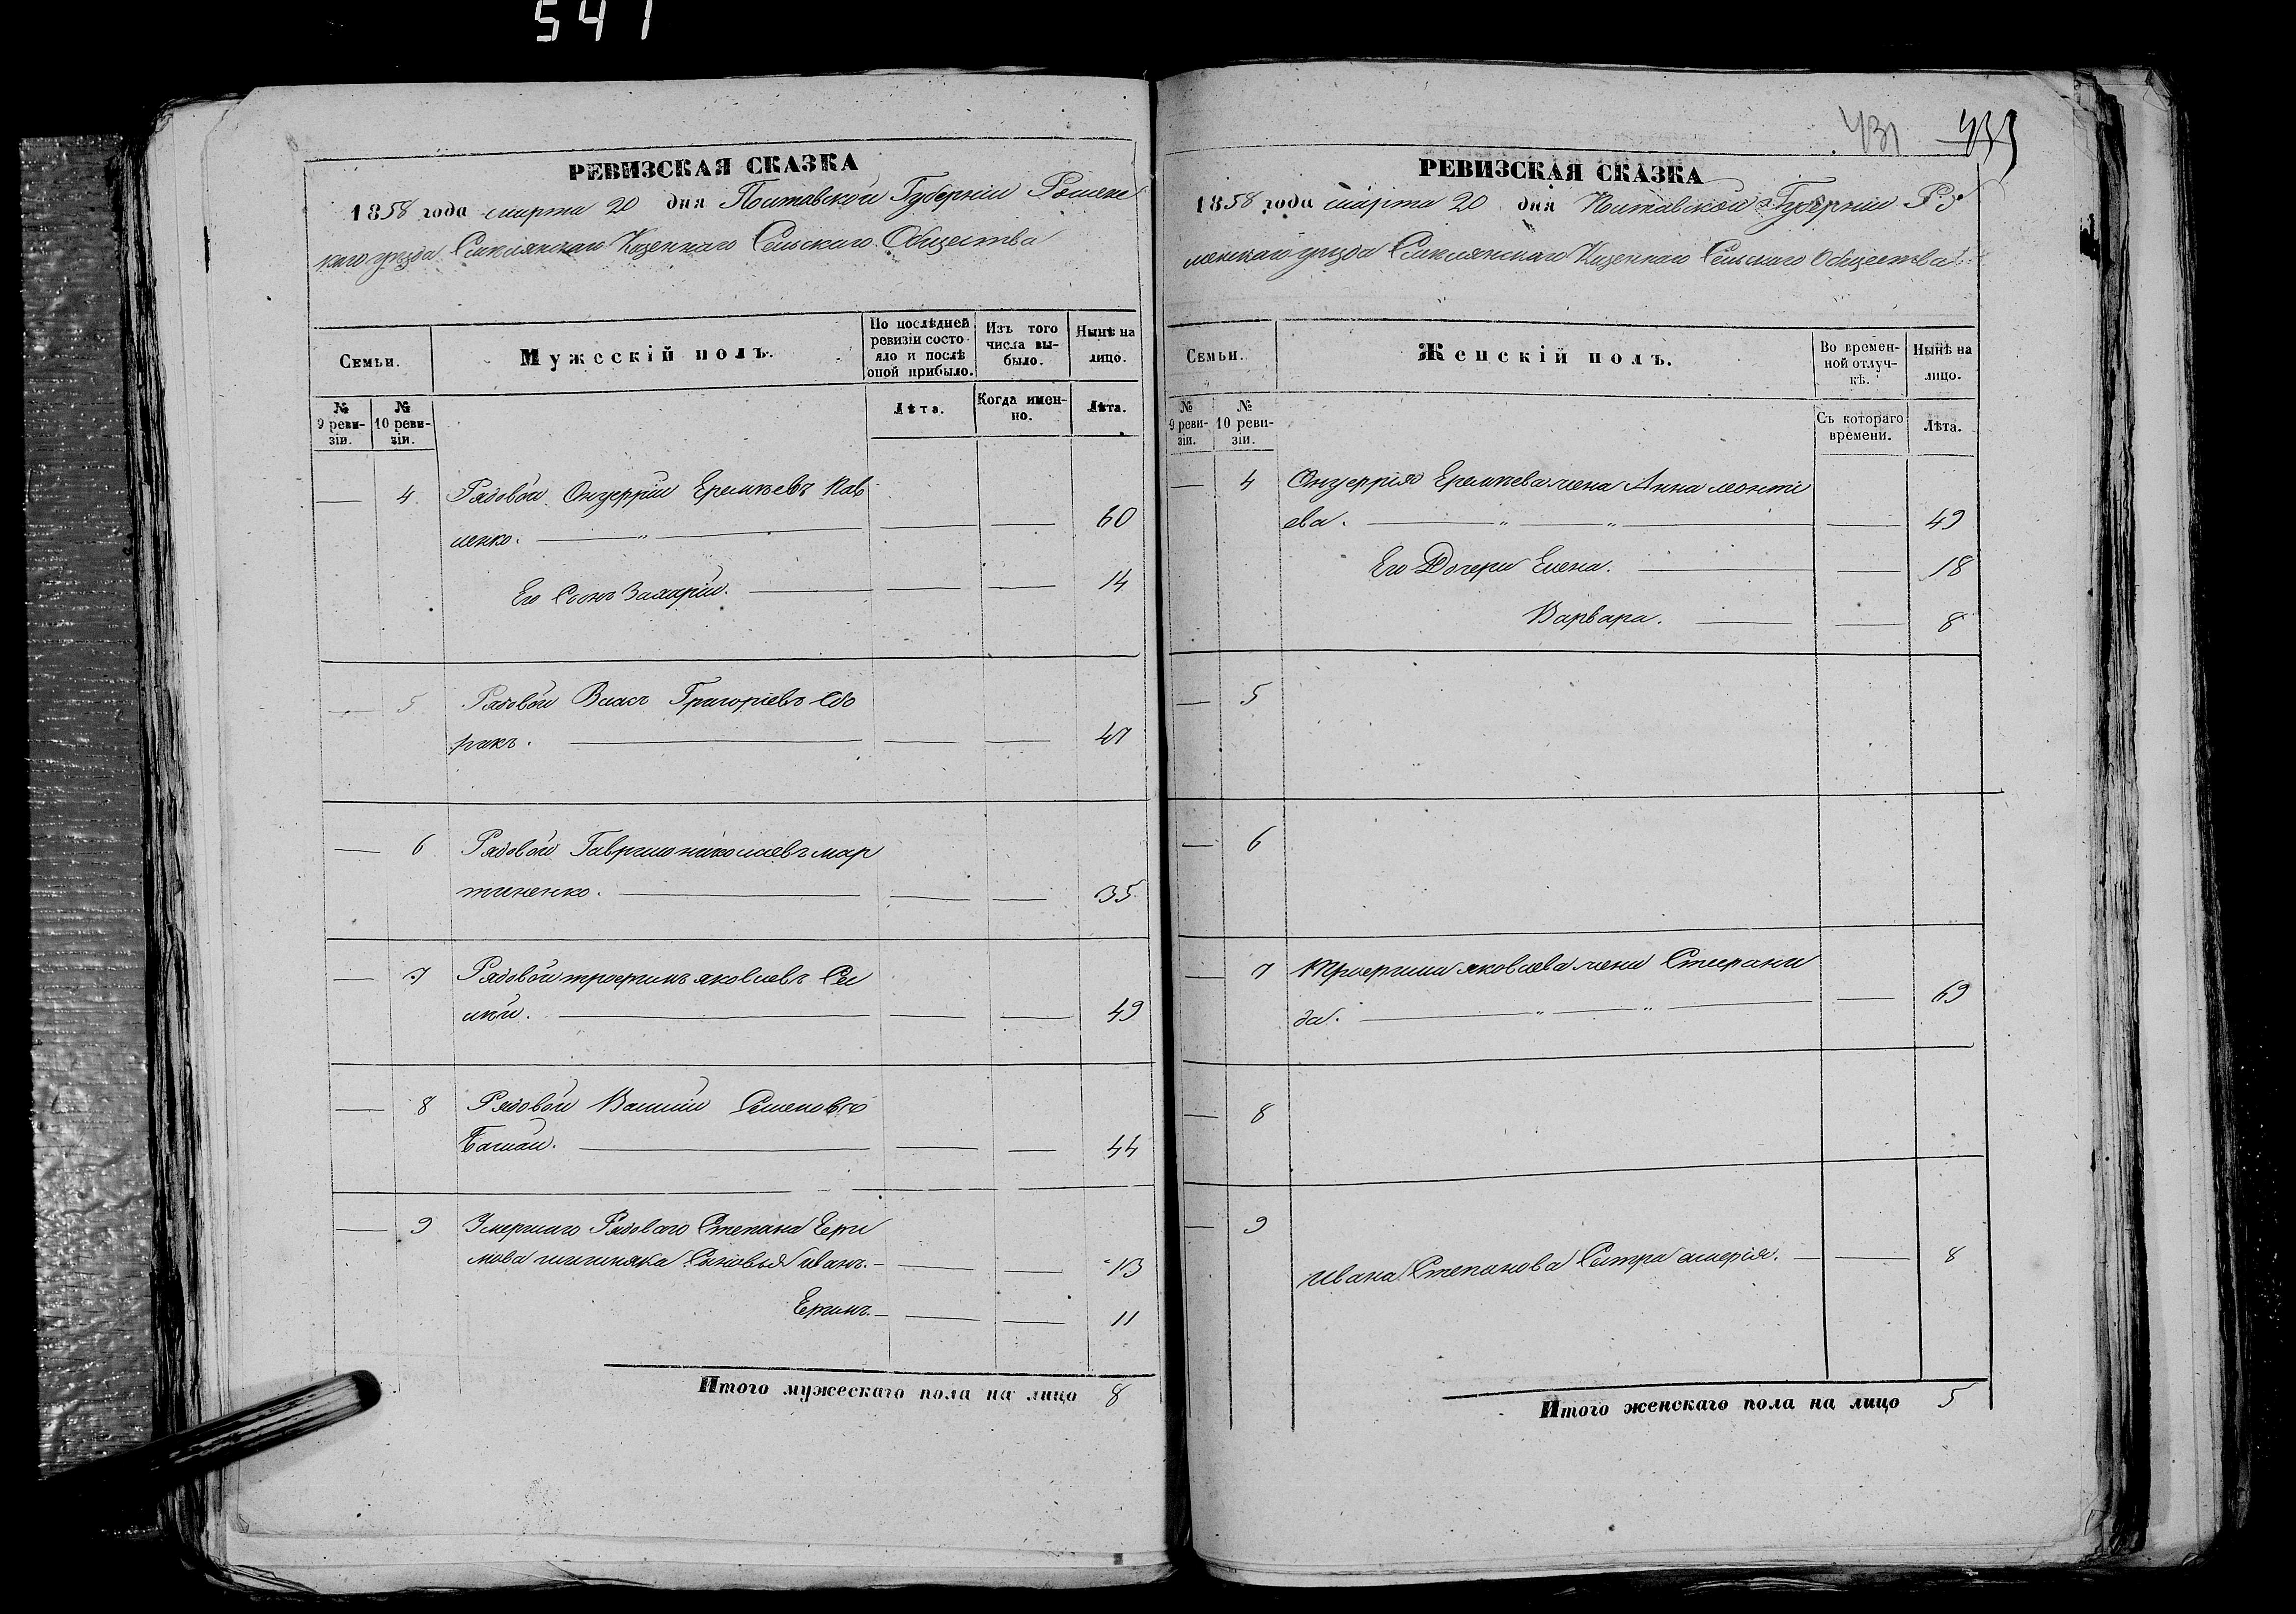 541
431 433
РЕВИЗСКАЯ СКАЗКА
1858 года марта 20 дня Полтавской Губерніи Роменс
каго уезда Смелянскаго Казеннаго Сельскаго Общества
Семьи.
Мужескій полъ.
По послѣдней ревизіи состояло и послѣ оной прибыло.
Изъ того числа выбыло.
Нынѣ на лицо.
№ 9 ревизіи.
№ 10 ревизіи.
Лѣта.
Когда именно.
Лѣта.
— 4. Рядовой Онуфрій Еремѣевъ Пав
ленко. — — — 60
Его Сынъ Захарій. — — — 14
— 5 Рядовой Власъ Григоріевъ
— — — 47
— 6 Рядовой Гаврило николаевъ мар
тиненко. — — — 35
— 7 Рядовой трофимъ яковлевъ
— — — 49
— 8 Рядовой Василій Семеновъ
— — — 44
— 9 Умершаго Рядового Степана Ефи
мова Сыновья иванъ. — — — 13
Ефимъ. — — — 11
Итого мужескаго пола на лицо 8
РЕВИЗСКАЯ СКАЗКА
1858 года марта 20 дня Полтавской Губерніи Ро
менскаго уезда Смелянскаго Казеннаго Сельскаго Общества
Семьи.
Женскій полъ.
Во временной отлучкѣ.
Нынѣ на лицо.
№ 9 ревизіи.
№ 10 ревизіи.
Съ котораго времени.
Лѣта.
— 4 Онуфрія Еремѣева жена Анна леонті
ева. — — 49
Его Дочери Елена. — — 18
Варвара. — — 8
— 5
— 6
— 7 Трофима яковлева жена Степани
да. — — 69
— 8
— 9
Ивана Степанова Сестра — — 8
Итого женскаго пола на лицо 5